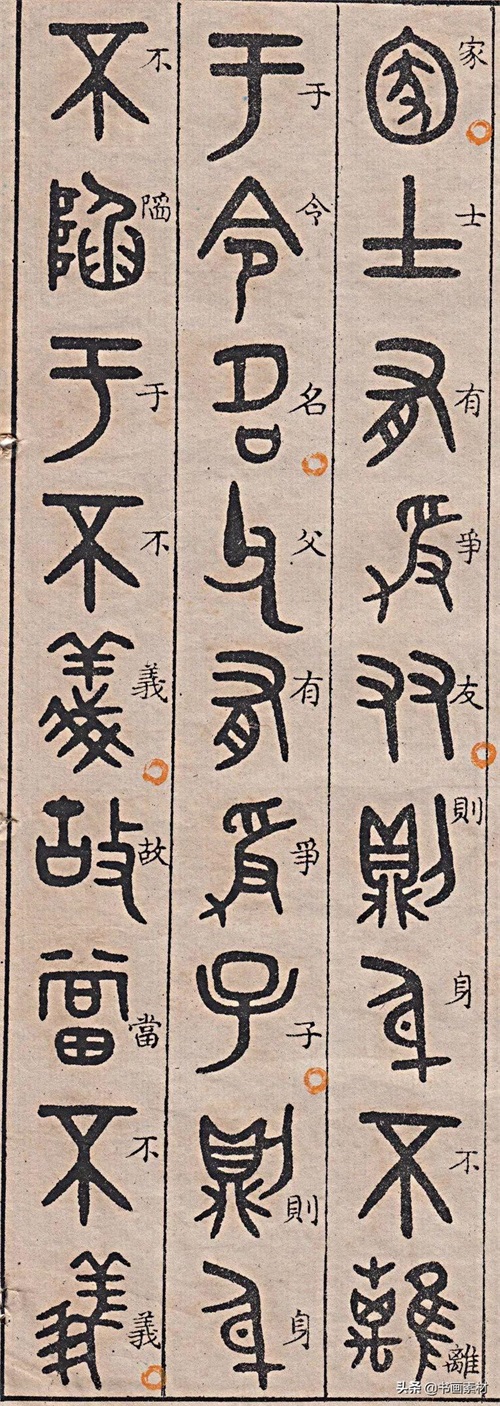 家士有爭友則身不離
于令名父有爭子則身
不陷于不義故當不義
头条 @书画素材